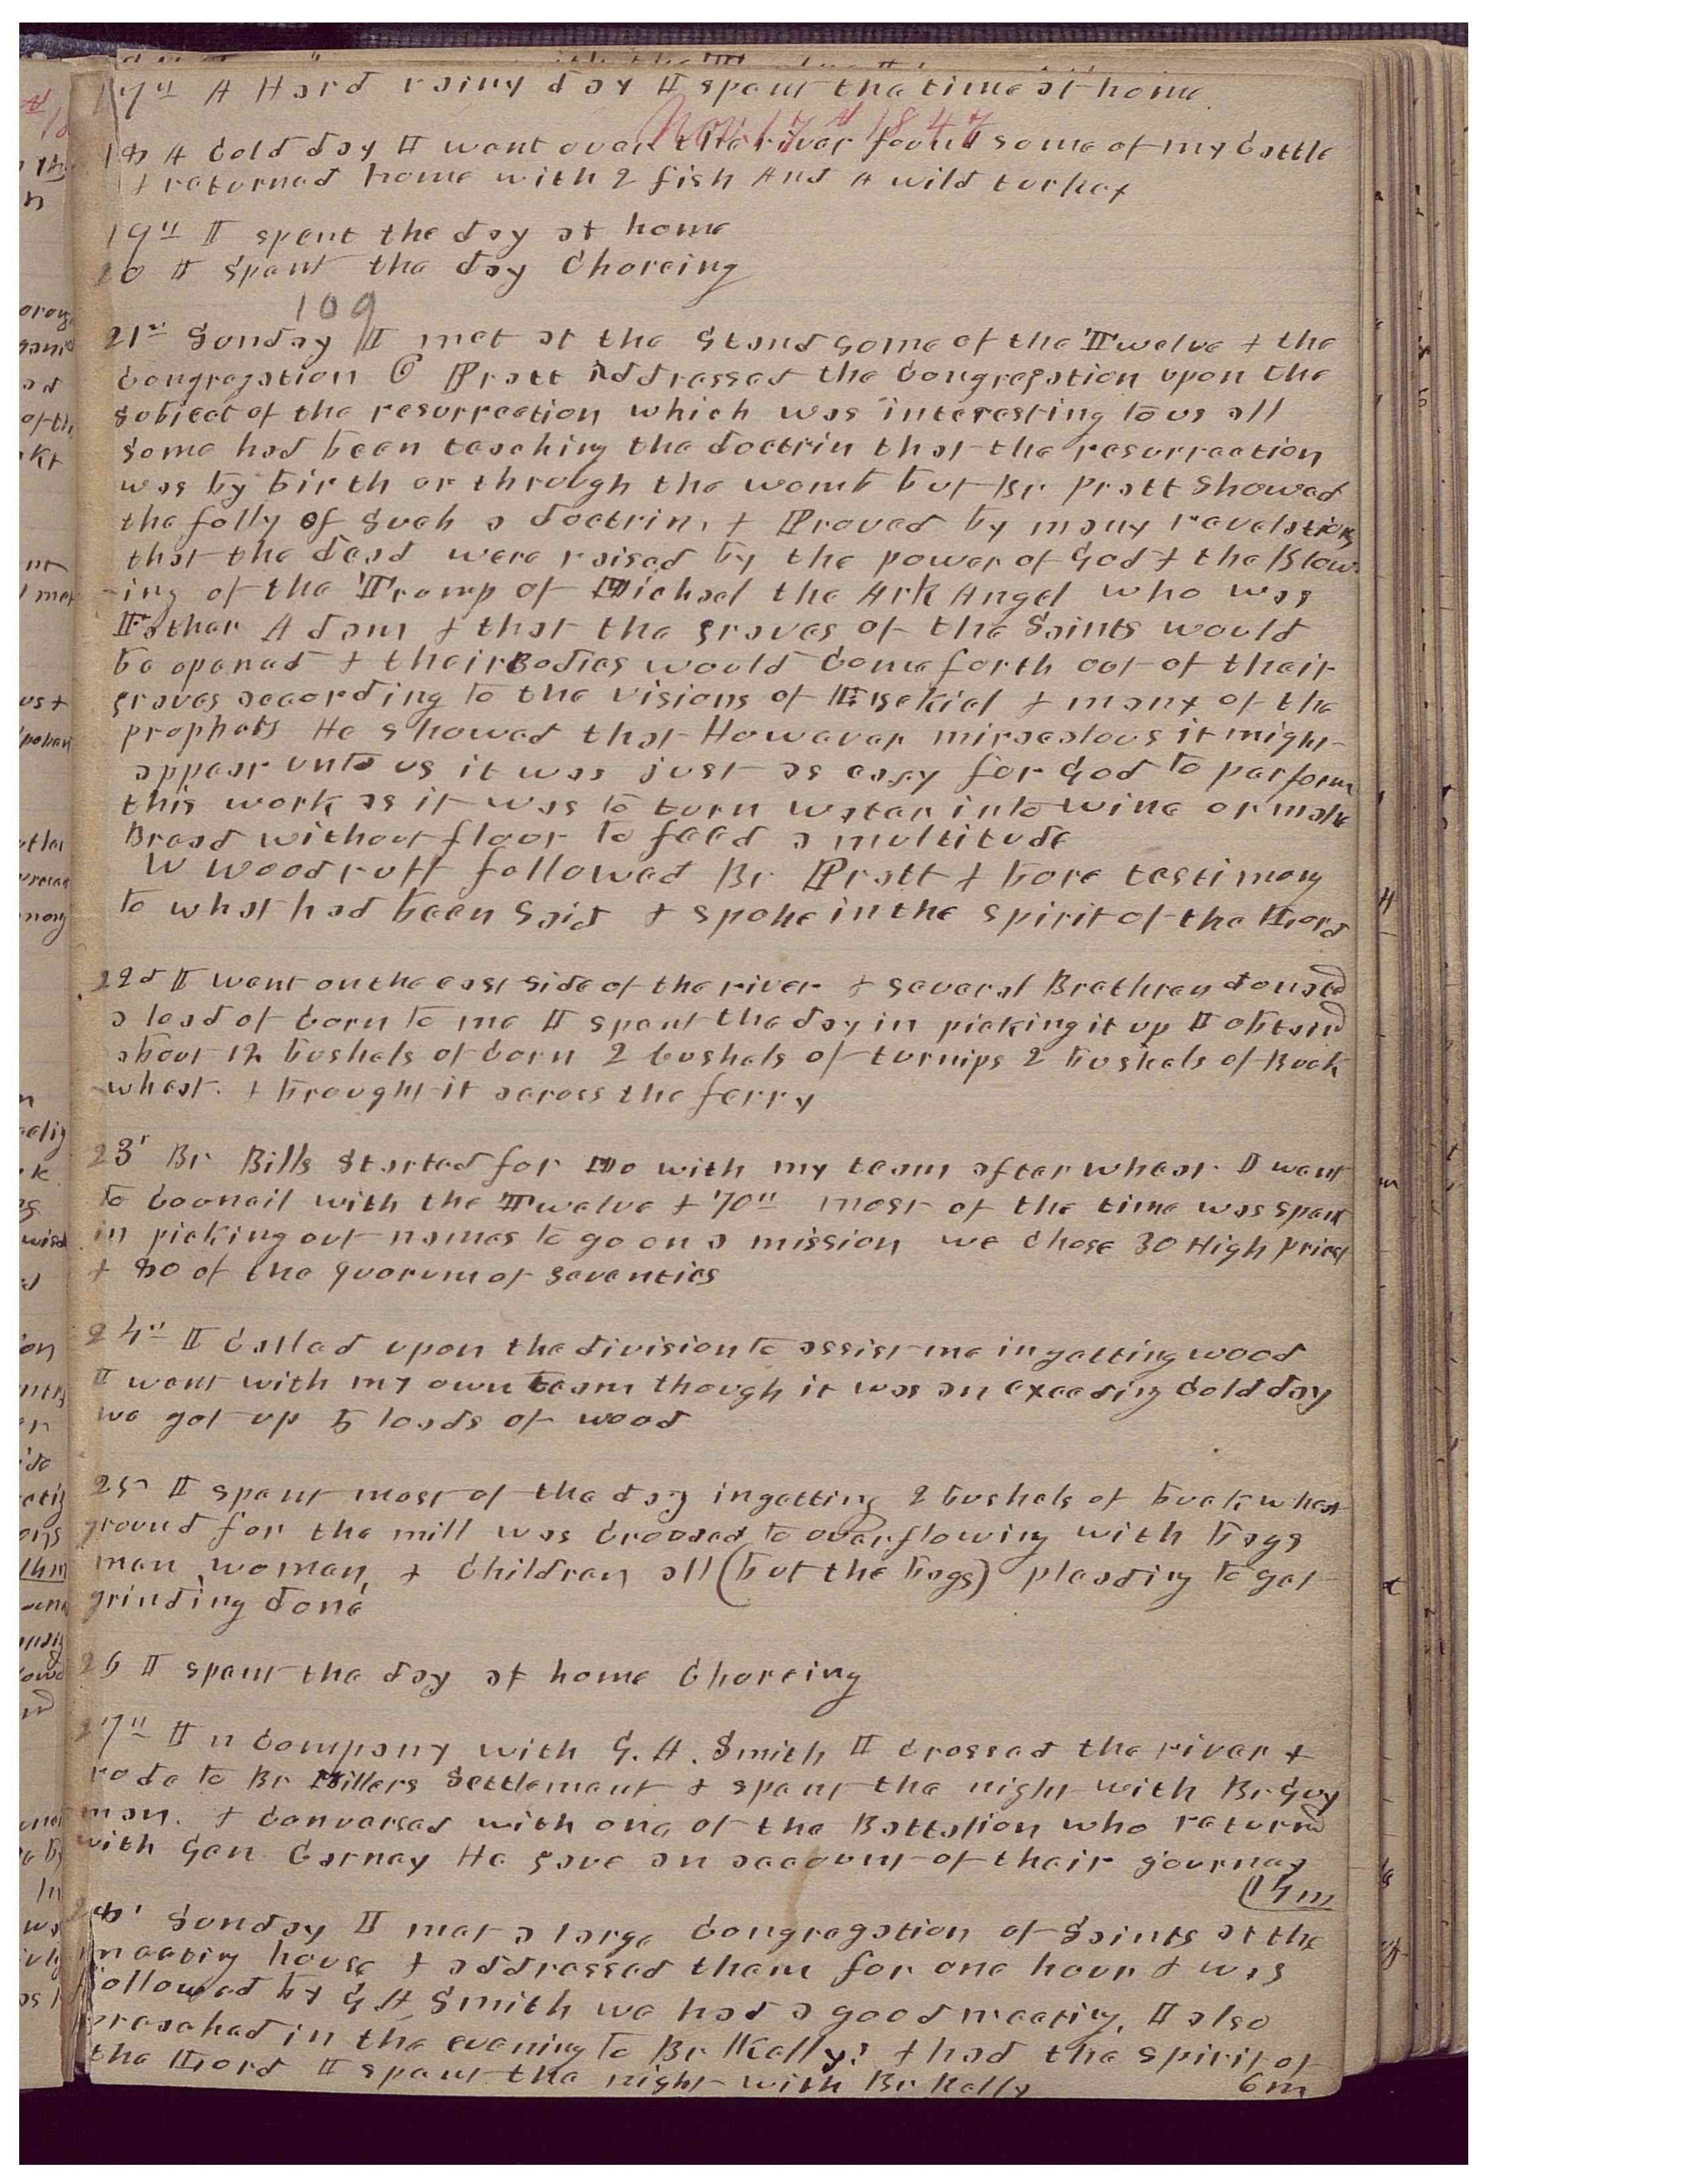 17th A Hard rainy day I spent the time at home
Nov. 17th 1847
18 A Cold day I went over the river found some of my Cattle
& returned home with 2 fish And A wild turkey
19th I spent the day at home
20 I spent the day Choreing
109
21st Sunday I met at the Stand some of the Twelve & the
Congregation O Pratt Addressed the Congregation upon the
subject of the resurrection which was interesting to us all
some had been teaching the doctrin that the resurrection
was by birth or through the womb but Br Pratt Showed
the folly of such a doctrin, & Proved by many revelations
that the dead were raised by the power of God & the Blow
-ing of the Trump of Michael the Ark Angel who was
Father Adam & that the graves of the Saints would
be opened & their Bodies would Come forth out of their
graves according to the visions of Ezekiel & many of the
prophets He showed that However miraculous it might
appear unto us it was just as easy for God to perform
this work as it was to turn water into wine or make
Bread without flour to feed a multitude
W Woodruff followed Br Pratt & bore testimony
to what had been said & spoke in the spirit of the Lord
22d I went on the east side of the river & several Brethren donated
a load of Corn to me I spent the day in picking it up I obtand
about 12 bushels of Corn 2 bushels of turnips 2 bushels of Buck
-wheat. & brought it across the ferry
23r Br Bills started for Mo with my team after wheat I went
to Council with the Twelve & 70th most of the time was spent
in picking out names to go on a mission we Chose 30 High Priest
& 80 of the quorum of Seventies
24th I Called upon the division to assist me in getting wood
I went with my own team though it was an exceeding Cold day
we got up 5 loads of wood
25 I spent most of the day in getting 2 bushels of buckwheat
ground for the mill was Crowded to overflowing with bags
men, women, & Children all (but the bags) pleading to get
grinding done
26 I spent the day at home Choreing
27th In Company with G. A. Smith I Crossed the river &
rode to Br Millers Settlement & spent the night with Br Guy
man. & Conversed with one of the Battalion who returnd
with Gen Carney He gave an account of their journey
14 m
28' Sunday I met a large Congregation of Saints at the
meeting house & addressed them for one hour & was
followed by G A Smith we had a good meeting, I also
preached in the evening to Br Kelly's & had the spirit of
the Lord I spent the night with Br Kelly 6 m